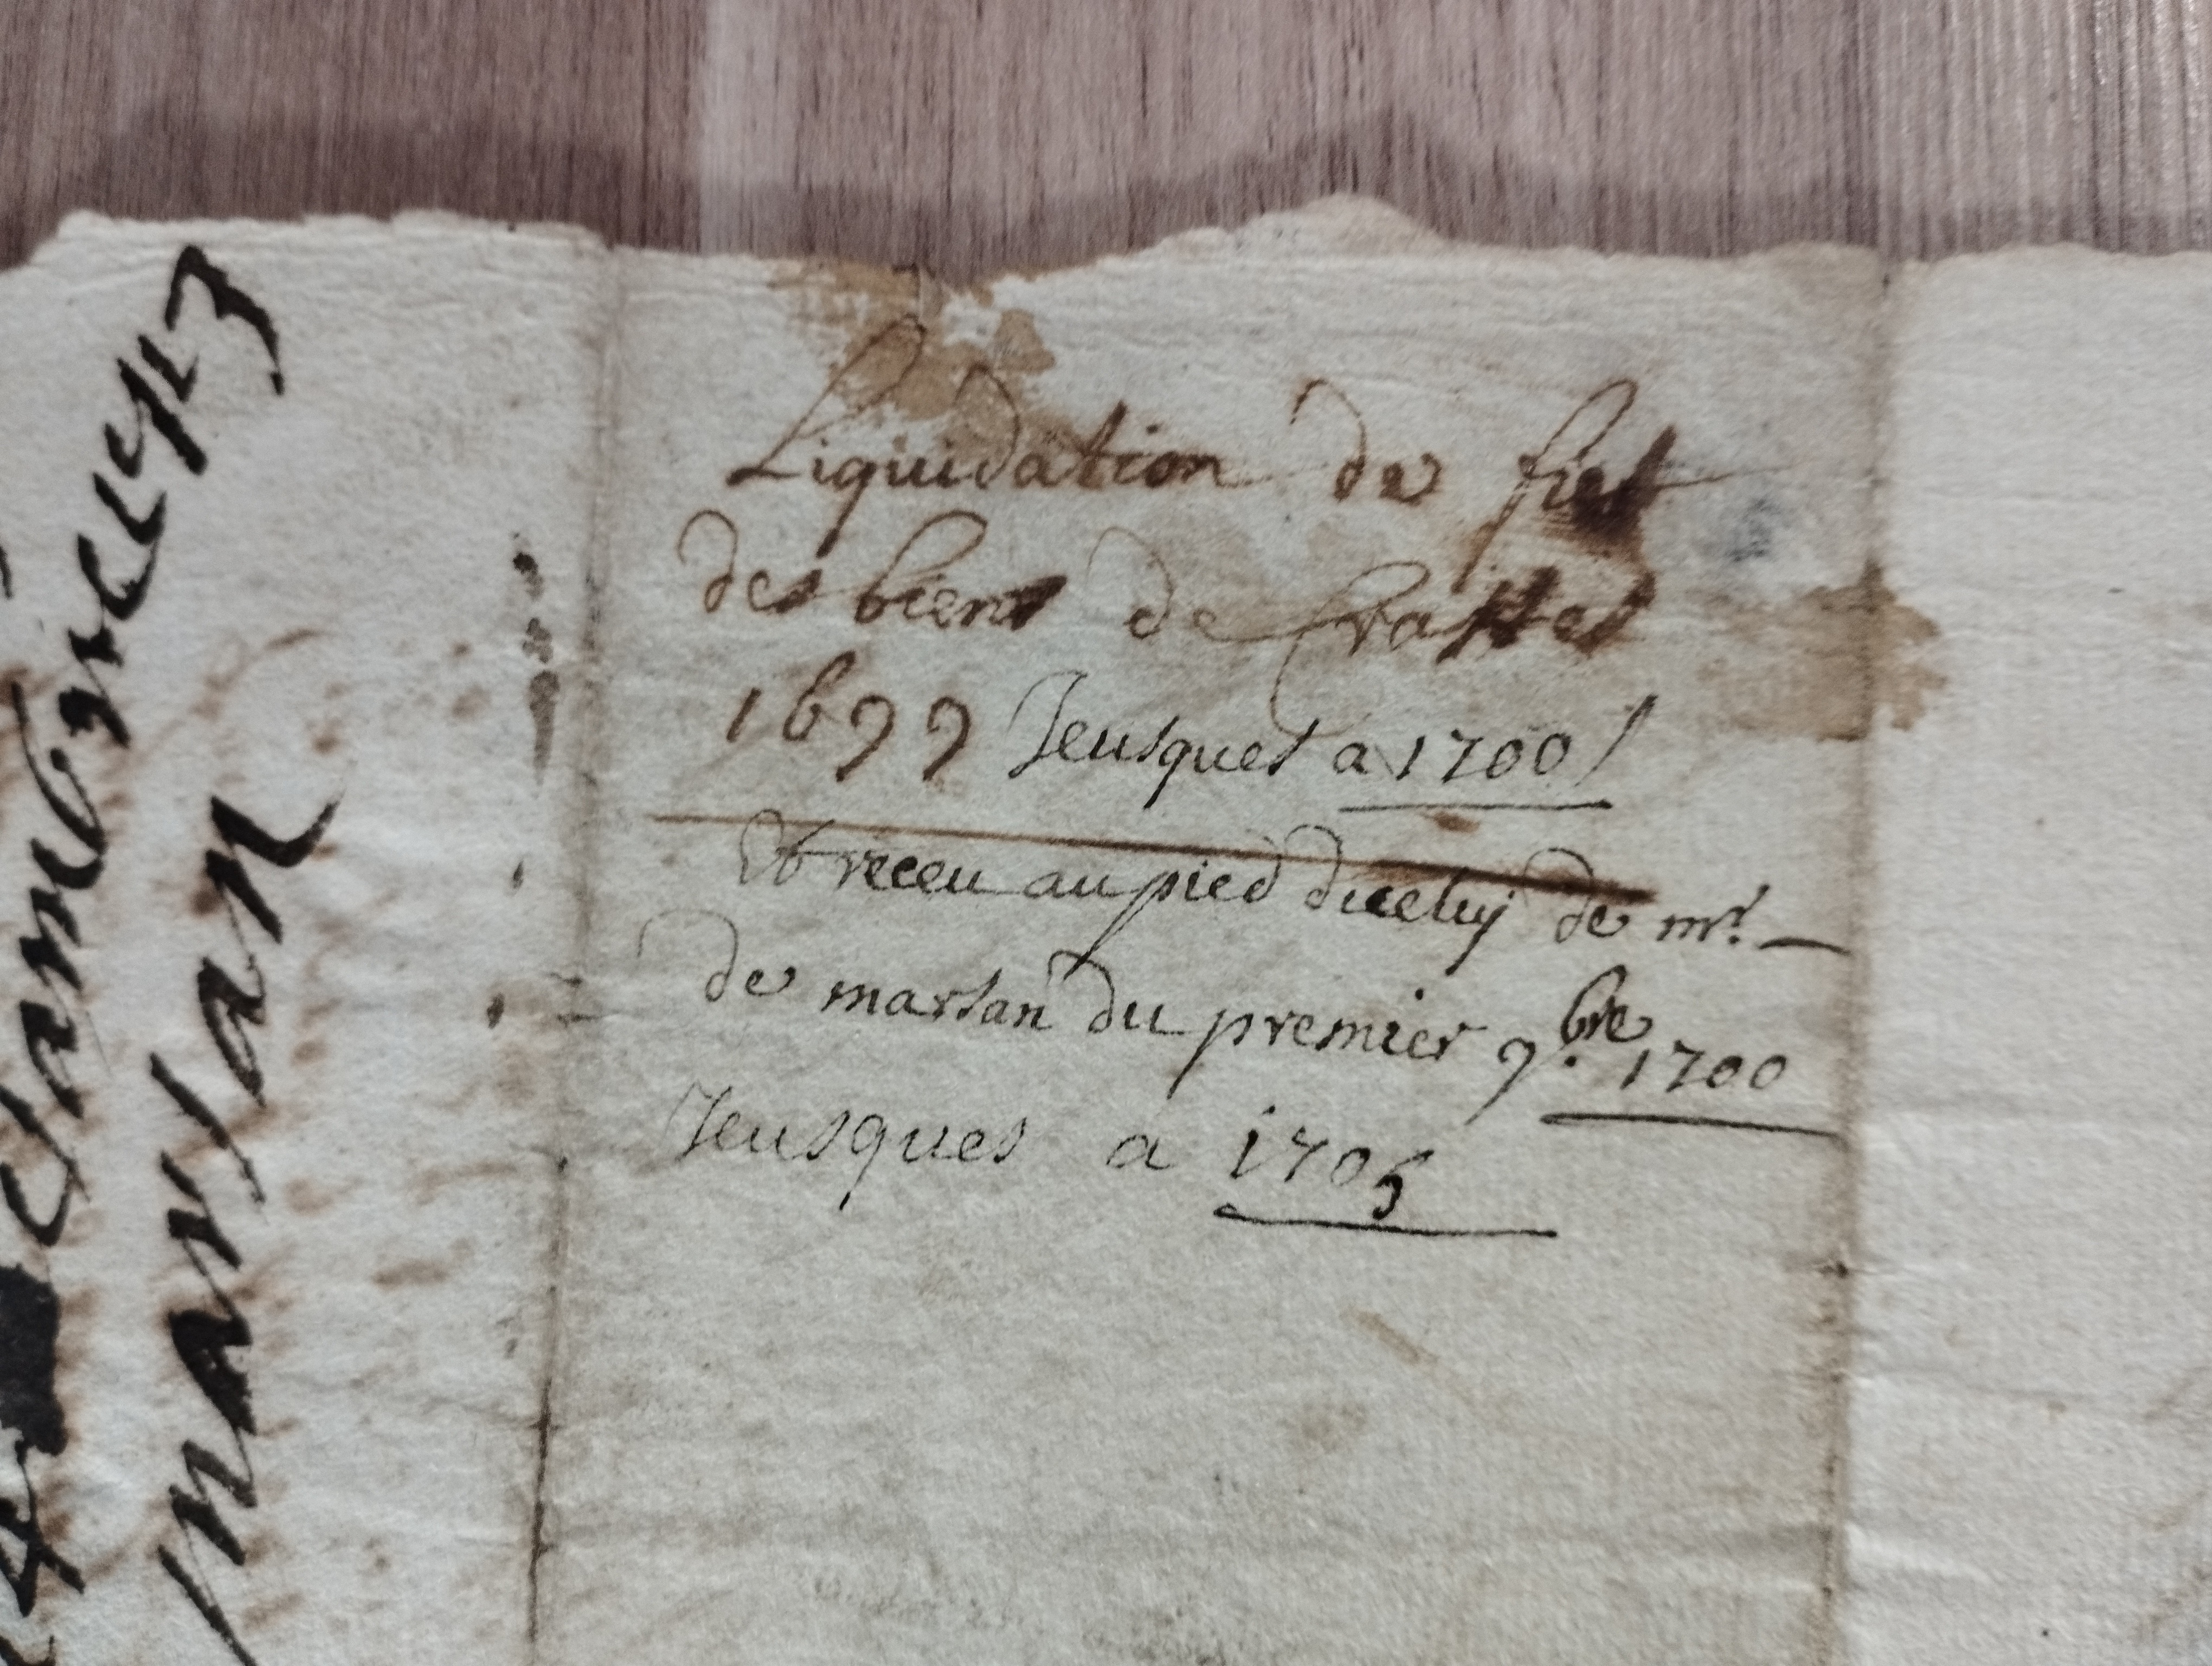 Liquidation de fief
des biens de
1699 Jeusques a 1700
Et receu au pied diceluy de mr.
de marsan du premier 9.bre 1700
Jeusques a 1705
marsan